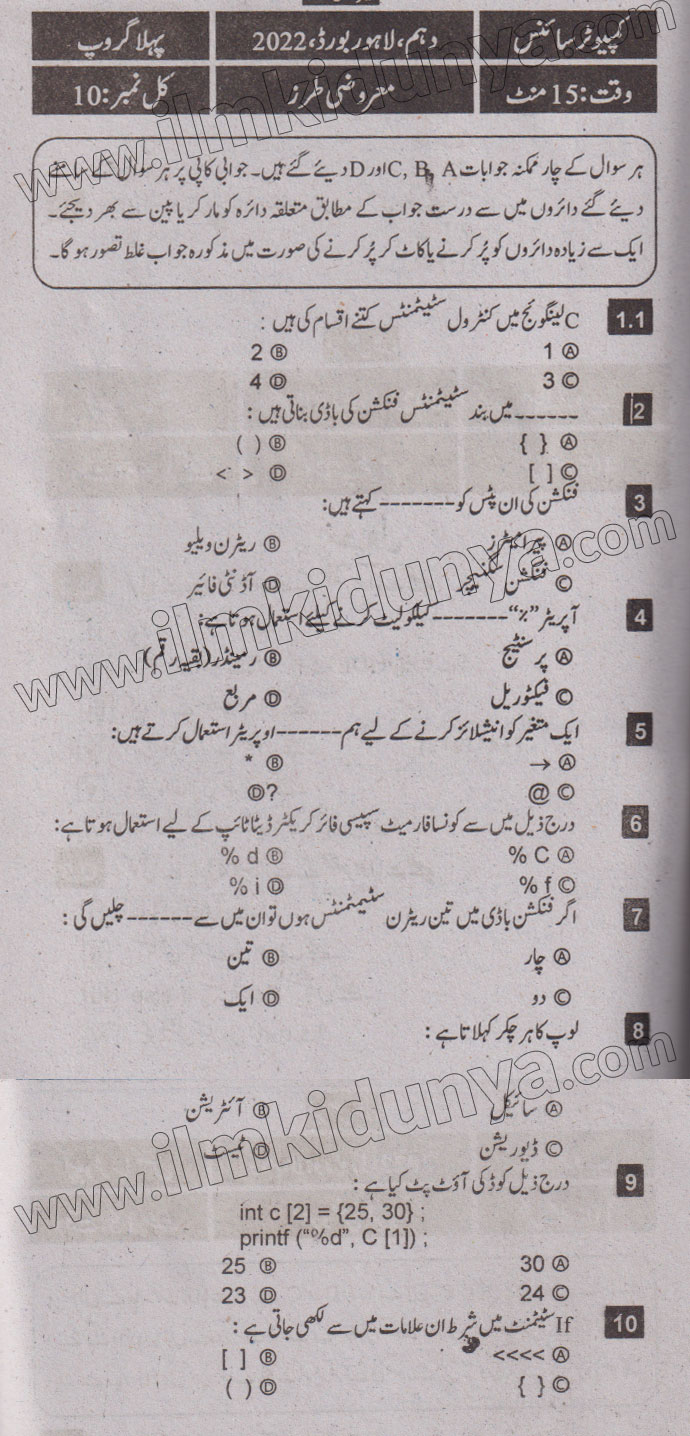 کمپیوٹر سائنس دہم، لاہور بورڈ، 2022 پہلا گروپ
وقت: 15 منٹ معروضی طرز کل نمبر: 10
ہر سوال کے چار ممکنہ جوابات C, B, A اور D دیئے گئے ہیں۔ جوابی کاپی پر ہر سوال کے سامنے
دیئے گئے دائروں میں سے درست جواب کے مطابق متعلقہ دائرہ کو مارکر یا پین سے بھر دیجئے۔
ایک سے زیادہ دائروں کو پُر کرنے یا کاٹ کر پُر کرنے کی صورت میں مذکورہ جواب غلط تصور ہو گا۔
1.1 C لینگوئج میں کنٹرول سٹیٹمنٹس کتنے اقسام کی ہیں :
Ⓐ 1 Ⓑ 2
Ⓒ 3 Ⓓ 4
2 ------میں بند سٹیٹمنٹس فنکشن کی باڈی بناتی ہیں :
Ⓐ { } Ⓑ ( )
Ⓒ [ ] Ⓓ < >
3 فنکشن کی ان پٹس کو-------کہتے ہیں:
Ⓐ پیرامیٹرز Ⓑ ریٹرن ویلیو
Ⓒ فنکشن سگنیچر Ⓓ آڈنٹی فائیر
4 آپریٹر ”%“-------کیلکولیٹ کرنے کیلئے استعمال ہوتا ہے:
Ⓐ پرسنٹیج Ⓑ رمینڈر (بقیہ رقم)
Ⓒ فیکٹوریل Ⓓ مربع
5 ایک متغیر کو انیشلائز کرنے کے لیے ہم------اوپریٹر استعمال کرتے ہیں:
Ⓐ → Ⓑ *
Ⓒ @ Ⓓ ?
6 درج ذیل میں سے کونسا فارمیٹ سپیسی فائر کریکٹر ڈیٹا ٹائپ کے لیے استعمال ہوتا ہے:
Ⓐ % C Ⓑ % d
Ⓒ % f Ⓓ % i
7 اگر فنکشن باڈی میں تین ریٹرن سٹیمٹنٹس ہوں تو ان میں سے------چلیں گی :
Ⓐ چار Ⓑ تین
Ⓒ دو Ⓓ ایک
8 لوپ کا ہر چکر کہلاتا ہے :
Ⓐ سائیکل Ⓑ آئٹریشن
Ⓒ ڈیوریشن Ⓓ ٹیسٹ
9 درج ذیل کوڈ کی آؤٹ پٹ کیا ہے :
int c [2] = {25, 30} ;
printf (“%d”, C [1]) ;
Ⓐ 30 Ⓑ 25
Ⓒ 24 Ⓓ 23
10 If سٹیٹمنٹ میں شرط ان علامات میں سے لکھی جاتی ہے :
Ⓐ <<<< Ⓑ [ ]
Ⓒ { } Ⓓ ( )
www.ilmkidunya.com
www.ilmkidunya.com
www.ilmkidunya.com